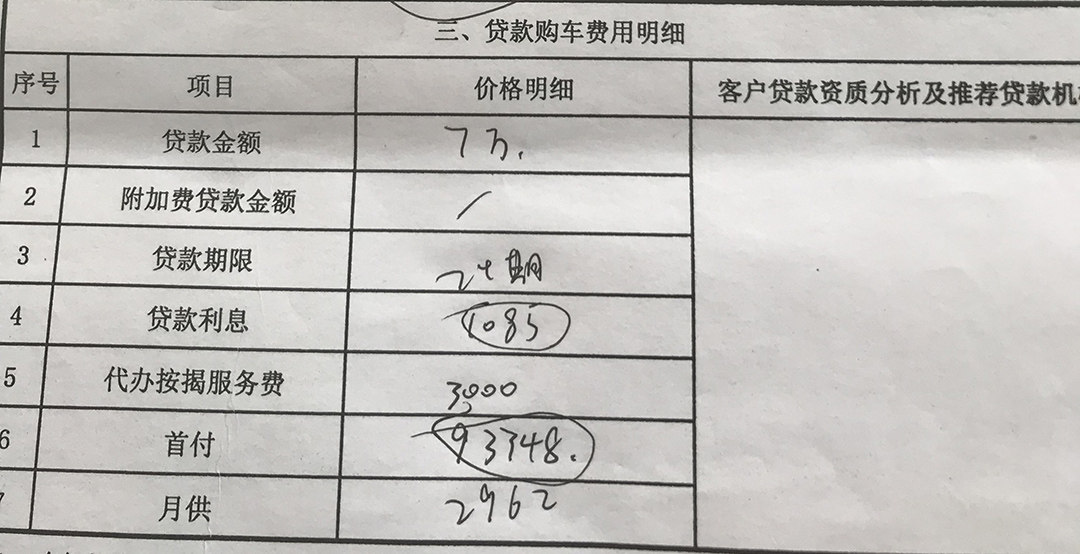 三、贷款购车费用明细
序号 项目 价格明细 客户贷款资质分析及推荐贷款机
1 贷款金额 7万.
2 附加费贷款金额 /
3 贷款期限 24期
4 贷款利息 1085
5 代办按揭服务费 3000
6 首付 93348.
7 月供 2962